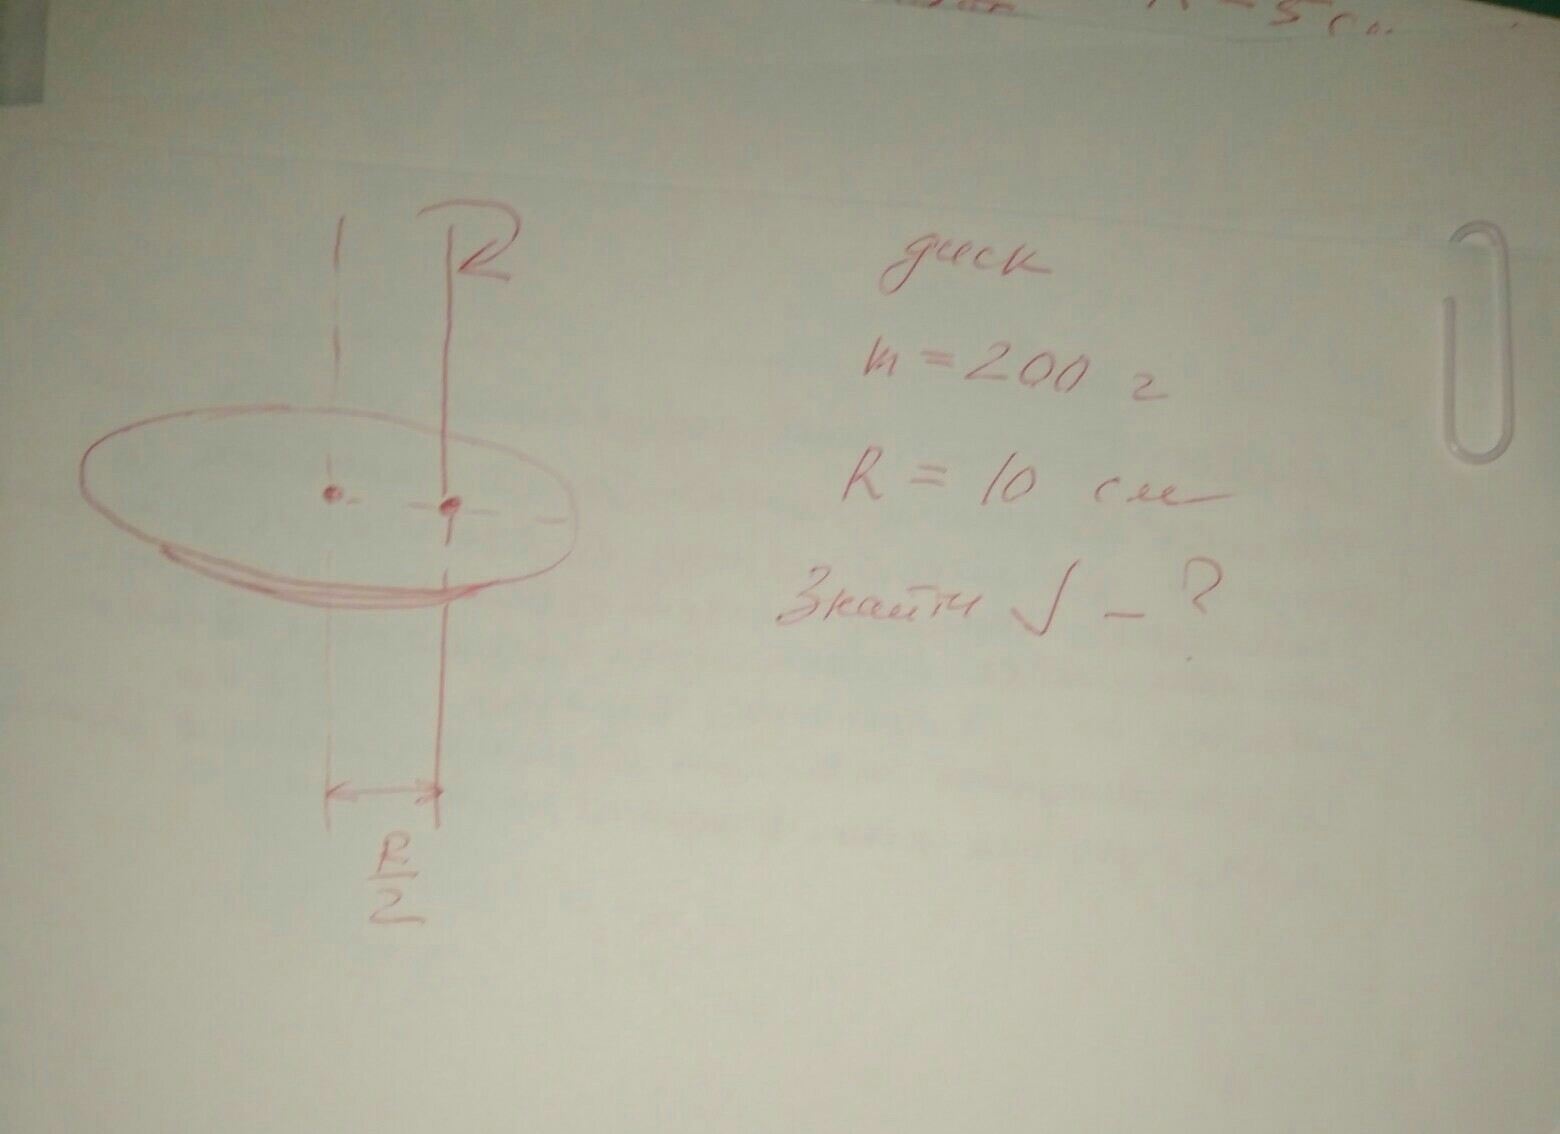 R = 5 см
R
диск
m = 200 г
R = 10 см
Знайти J - ?
R
2